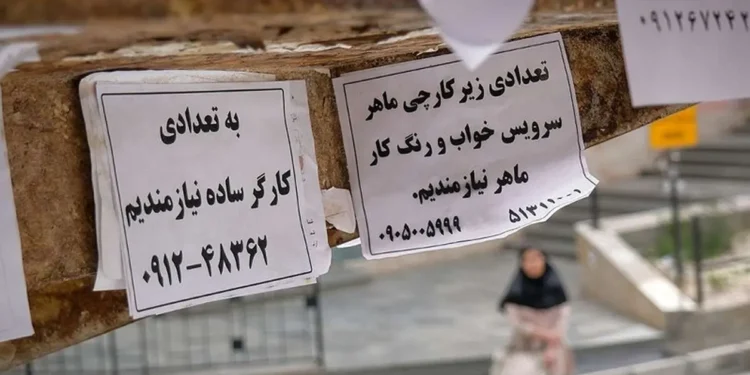 به تعدادی
کارگر ساده نیازمندیم
۰۹۱۲-۴۸۳۶۲
تعدادی زیرکارچی ماهر
سرویس خواب و رنگ کار
ماهر نیازمندیم.
۰۹۰۵۰۰۵۹۹۹
۵۱۳۱۱۰۰۱
۰۹۱۲۶۷۲۴۲